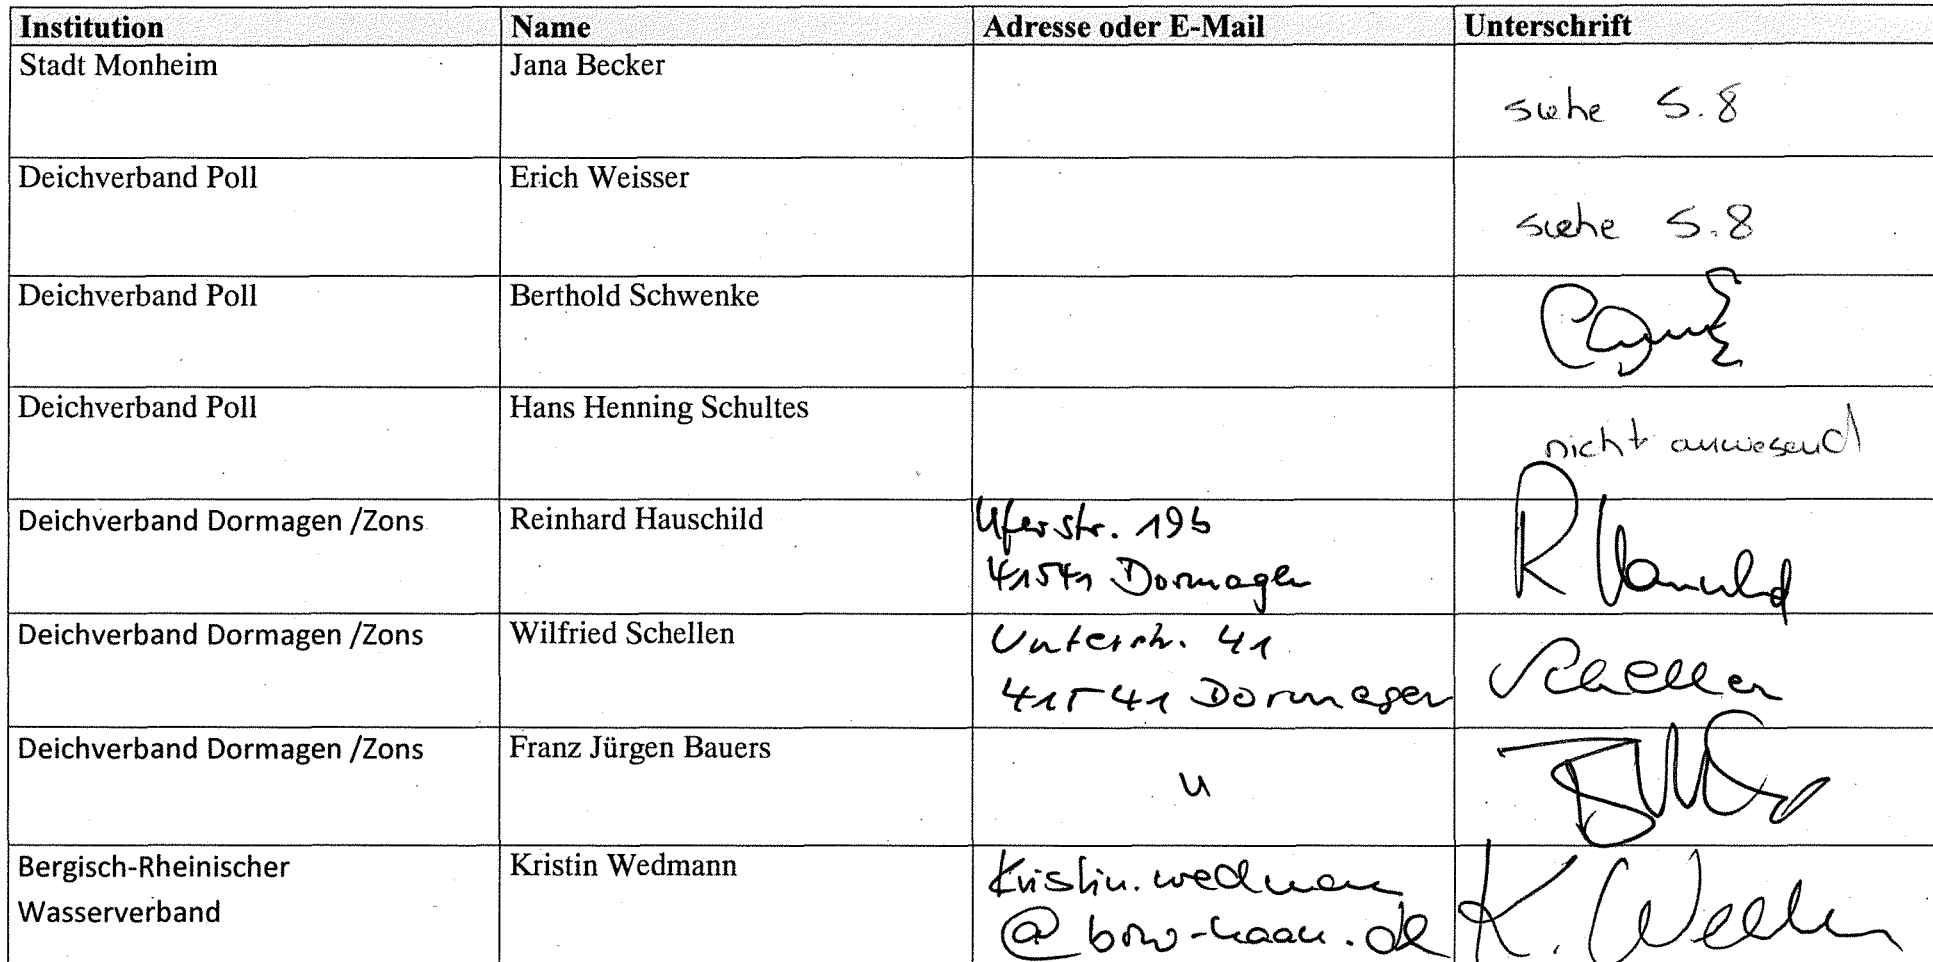 Institution Name Adresse oder E-Mail Unterschrift
Stadt Monheim Jana Becker
siehe S.8
Deichverband Poll Erich Weisser
siehe S.8
Deichverband Poll Berthold Schwenke
Deichverband Poll Hans Henning Schultes
nicht anwesend
Deichverband Dormagen /Zons Reinhard Hauschild Uferstr. 19b
41541 Dormagen
Deichverband Dormagen /Zons Wilfried Schellen Unterstr. 41
41541 Dormagen Schellen
Deichverband Dormagen /Zons Franz Jürgen Bauers
"
Bergisch-Rheinischer Kristin Wedmann Kristin.wedmann
Wasserverband @brw-haan.de K. Wedm